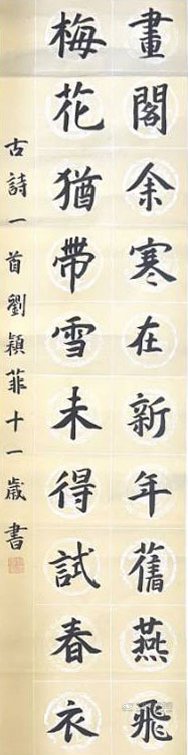 畫閣余寒在新年舊燕飛
梅花猶帶雪未得試春衣
古詩一首劉穎菲十一歲書